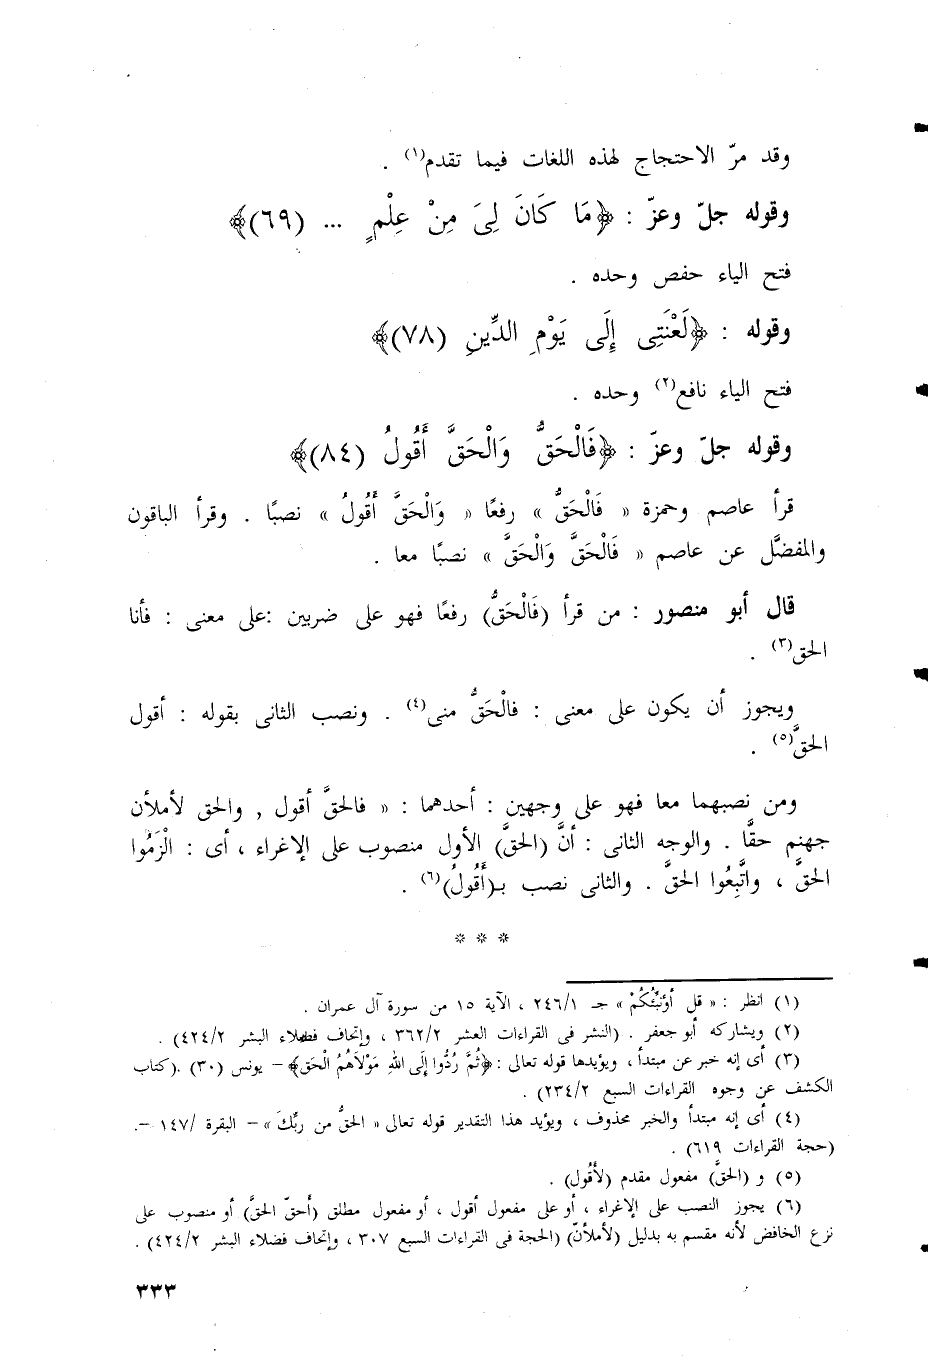 وقد مرّ الاحتجاج لهذه اللغات فيما تقدم(١) .
وقوله جلّ وعزّ : ﴿مَا كَانَ لِىَ مِنْ عِلْمٍ ... (٦٩)﴾
فتح الياء حفص وحده .
وقوله : ﴿لَعْنَتِى إِلَى يَوْمِ الدِّينِ (٧٨)﴾
فتح الياء نافع(٢) وحده .
وقوله جلّ وعزّ : ﴿فَالْحَقُّ وَالْحَقَّ أَقُولُ (٨٤)﴾
قرأ عاصم وحمزة « فَالْحَقُّ » رفعًا « وَالْحَقَّ أَقُولُ » نصبًا . وقرأ الباقون
والمفضَّل عن عاصم « فَالْحَقَّ وَالْحَقَّ » نصبًا معا .
قال أبو منصور : من قرأ (فَالْحَقُّ) رفعًا فهو على ضربين :على معنى : فأنا
الحق(٣) .
ويجوز أن يكون على معنى : فالْحَقُّ منى(٤) . ونصب الثانى بقوله : أقول
الحقَّ(٥) .
ومن نصبهما معا فهو على وجهين : أحدهما : « فالحقَّ أقول , والحق لأملأن
جهنم حقًّا . والوجه الثانى : أنَّ (الحقَّ) الأول منصوب على الإغراء ، أى : الْزَمُوا
الحقَّ ، واتَّبِعُوا الحقَّ . والثانى نصب بـ(أَقُولُ)(٦) .
* * *
(١) انظر : « قل أَوُنَبِّئُكُمْ » جـ ٢٤٦/١ ، الآية ١٥ من سورة آل عمران .
(٢) ويشاركه أبو جعفر . (النشر فى القراءات العشر ٣٦٢/٢ ، وإتحاف فضلاء البشر ٤٢٤/٢) .
(٣) أى إنه خبر عن مبتدأ ، ويؤيدها قوله تعالى : ﴿ثُمَّ رُدُّوا إِلَى اللهِ مَوْلَاهُمُ الْحَقِ﴾ – يونس (٣٠) .(كتاب
الكشف عن وجوه القراءات السبع ٢٣٤/٢) .
(٤) أى إنه مبتدأ والخبر محذوف ، ويؤيد هذا التقدير قوله تعالى « الحقُّ من ربِّكَ » – البقرة /١٤٧ –.
(حجة القراءات ٦١٩) .
(٥) و (الحقَّ) مفعول مقدم (لأَقُول) .
(٦) يجوز النصب على الإغراء ، أو على مفعول أقول ، أو مفعول مطلق (أحقّ الحقَّ) أو منصوب على
نزع الخافض لأنه مقسم به بدليل (لأملأنّ) (الحجة فى القراءات السبع ٣٠٧ ، وإتحاف فضلاء البشر ٤٢٤/٢) .
٣٣٣